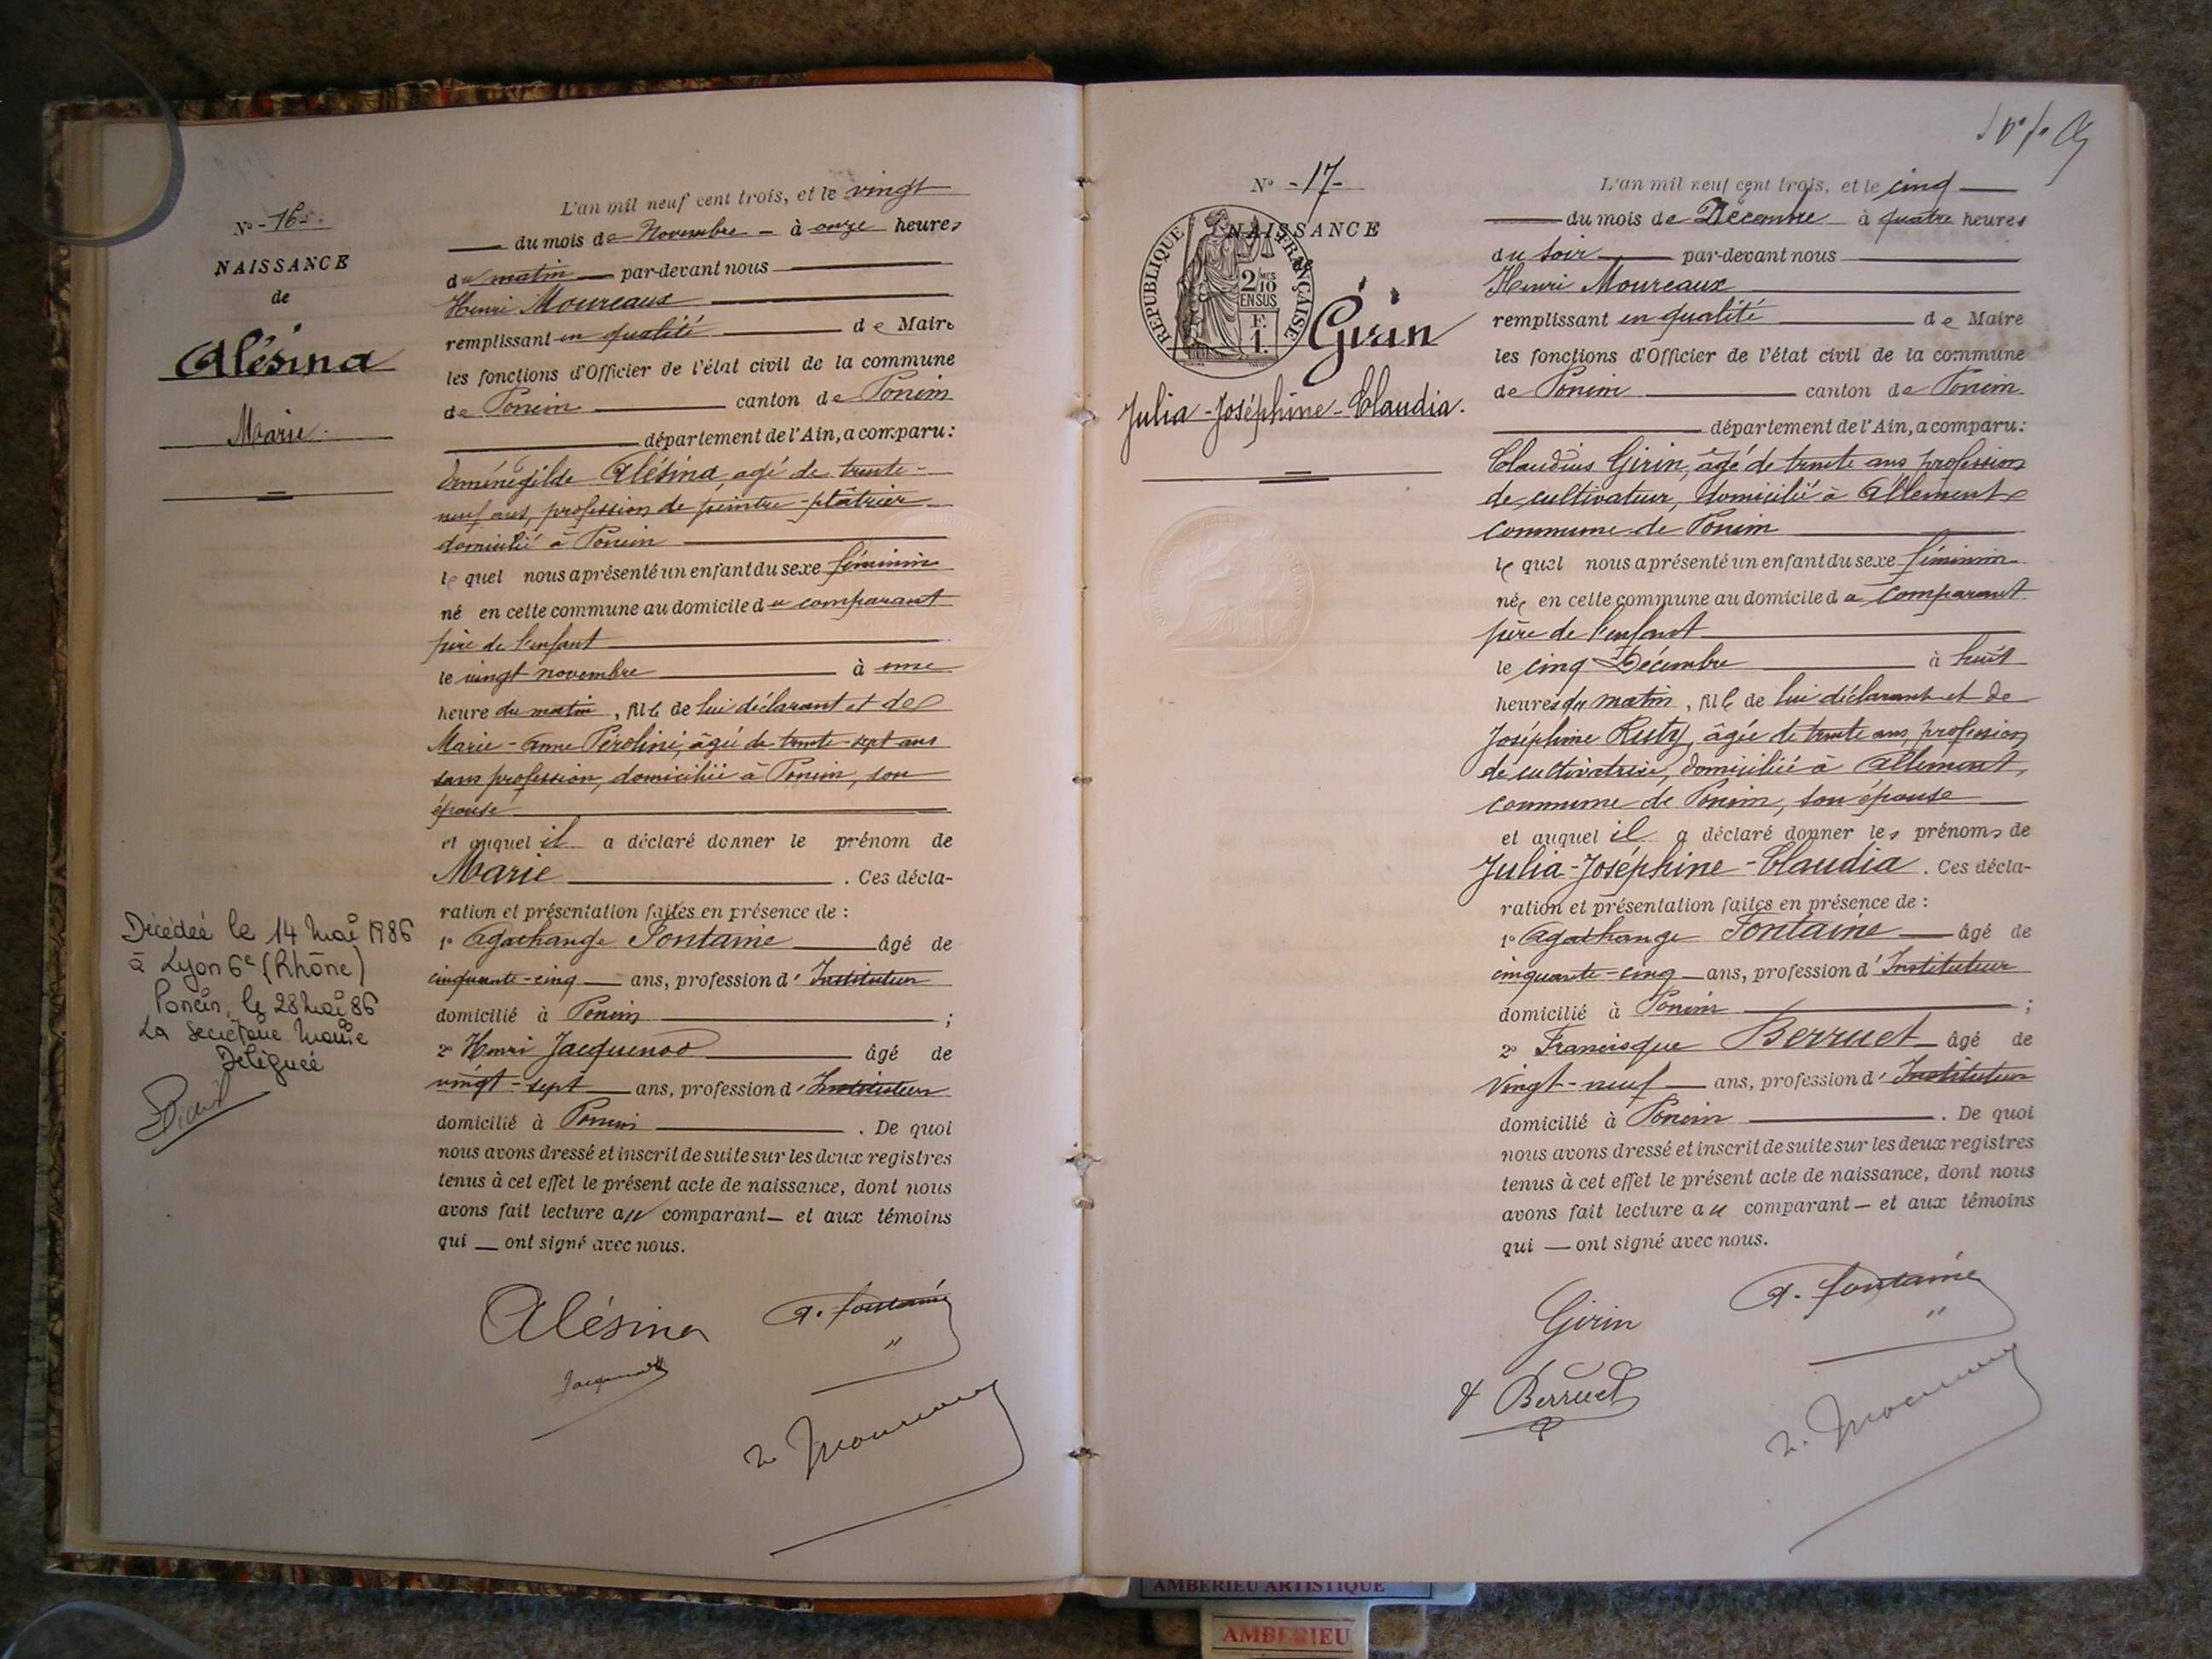 N° - 16 -
NAISSANCE
de
Alésina
Marie.
L'an mil neuf cent trois, et le vingt
du mois de Novembre - à onze heures
du matin par-devant nous
Henri Moureaux
remplissant en qualité de Maire
les fonctions d'Officier de l'état civil de la commune
de Poncin canton de Poncin
département de l'Ain, a comparu:
Erménégilde Alésina, agé de trente-
neuf ans, profession de peintre-plâtrier
domicilié à Poncin
le quel nous a présenté un enfant du sexe féminin
né en cette commune au domicile du comparant
père de l'enfant
le vingt novembre à une
heure du matin, fille de lui déclarant et de
Marie-Anne Pérolini, âgée de trente-sept ans
sans profession, domiciliée à Poncin, son
épouse
et auquel il a déclaré donner le prénom de
Marie . Ces décla-
ration et présentation faites en présence de :
1° Agathange Fontaine âgé de
cinquante-cinq ans, profession d'Instituteur
domicilié à Poncin ;
2° Henri Jacquenod âgé de
vingt-sept ans, profession d'Instituteur
domicilié à Poncin . De quoi
nous avons dressé et inscrit de suite sur les deux registres
tenus à cet effet le présent acte de naissance, dont nous
avons fait lecture au comparant - et aux témoins
qui — ont signé avec nous.
Décédée le 14 Mai 1986
à Lyon 6e (Rhône)
Poncin, le 28 Mai 86
La Secrétaire Mairie
Déléguée
Alésina
A. Fontaine
Jacquenod
H. Moureaux
N° - 17 -
NAISSANCE
de
REPUBLIQUE FRANÇAISE
2/10 MES
EN SUS
F.
1.
Girin
Julia-Joséphine-Claudia.
L'an mil neuf cent trois, et le cinq
du mois de Décembre à quatre heures
du soir par-devant nous
Henri Moureaux
remplissant en qualité de Maire
les fonctions d'Officier de l'état civil de la commune
de Poncin canton de Poncin
département de l'Ain, a comparu:
Claudius Girin, âgé de trente ans profession
de cultivateur, domicilié à Allement
commune de Poncin
le quel nous a présenté un enfant du sexe féminin
née en cette commune au domicile du comparant
père de l'enfant
le cinq Décembre à huit
heures du matin, fille de lui déclarant et de
Joséphine Ruty, âgée de trente ans, profession
de cultivatrice, domiciliée à Allement,
commune de Poncin, son épouse
et auquel il a déclaré donner les prénoms de
Julia-Joséphine-Claudia . Ces décla-
ration et présentation faites en présence de :
1° Agathange Fontaine âgé de
cinquante-cinq ans, profession d'Instituteur
domicilié à Poncin ;
2° Francisque Berruet âgé de
vingt-neuf ans, profession d'Instituteur
domicilié à Poncin . De quoi
nous avons dressé et inscrit de suite sur les deux registres
tenus à cet effet le présent acte de naissance, dont nous
avons fait lecture au comparant — et aux témoins
qui — ont signé avec nous.
Girin
A. Fontaine
F Berruet
H. Moureaux
AMBERIEU ARTISTIQUE
AMBERIEU